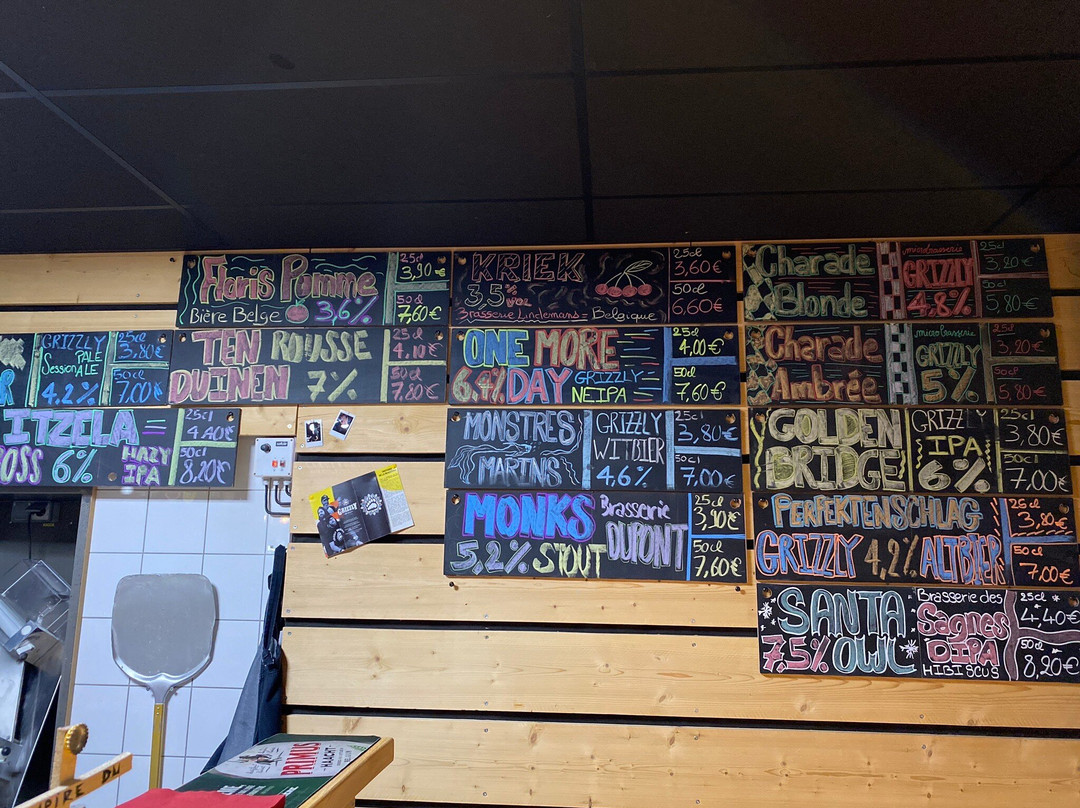 Floris Pomme
Bière Belge 3,6%
25cl
3,90€
50cl
7,60€
KRIEK
3,5% vol.
Brasserie Lindemans = Belgique
25cl
3,60€
50cl
6,60€
Charade
Blonde
microbrasserie
GRIZZLY
4,8%
25cl
3,20€
50cl
5,80€
GRIZZLY
PALE
Session ALE
4,2%
25cl
3,80€
50cl
7,00€
TEN ROUSSE
DUINEN 7%
25cl
4,10€
50cl
7,80€
ONE MORE
6,4% DAY GRIZZLY
NEIPA
25cl
4,00€
50cl
7,60€
Charade
Ambrée
microbrasserie
GRIZZLY
5%
25cl
3,20€
50cl
5,80€
ITZELA
OSS 6% HAZY
IPA
25cl
4,40€
50cl
8,20€
MONSTRES
MARINS
GRIZZLY
WITBIER
4,6%
25cl
3,80€
50cl
7,00€
GOLDEN
BRIDGE
GRIZZLY
IPA
6%
25cl
3,80€
50cl
7,00€
MONKS Brasserie
5,2% STOUT DUPONT
25cl
3,90€
50cl
7,60€
PERFEKTENSCHLAG
GRIZZLY 4,2% ALTBIER
25cl
3,80€
50cl
7,00€
SANTA
7,5% OWL
Brasserie des
Sagnes
DIPA
HIBISCUS
25cl
4,40€
50cl
8,20€
GRIZZLY
PRIMUS
HAACHT
PIRE DU